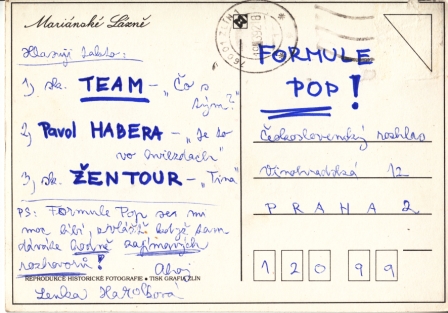 Mariánské Lázně
Hlasuji takto:
1, sk. TEAM - „Čo s
tým?"
2, Pavol HABERA - „Je to
vo hviezdach"
3, sk. ŽENTOUR - „Tina"
PS: Formule Pop se mi
moc líbí, zvlášť když tam
dáváte hodně zajímavých
rozhovorů! Ahoj
REPRODUKCE HISTORICKÉ FOTOGRAFIE • TISK GRAFIA ZLÍN
Lenka
FORMULE
POP!
Československý rozhlas
Vinohradská 12
PRAHA 2
12099